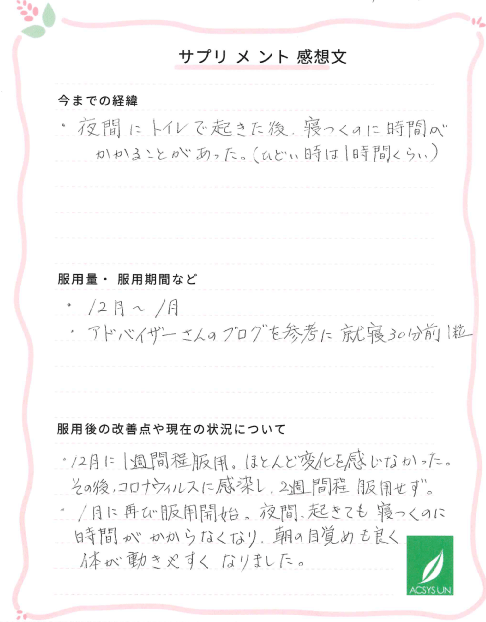 サプリメント 感想文
今までの経緯
・夜間にトイレで起きた後、寝つくのに時間が
かかることがあった。(ひどい時は1時間くらい)
服用量・服用期間など
・12月～1月
・アドバイザーさんのブログを参考に就寝30分前1粒
服用後の改善点や現在の状況について
・12月に1週間程服用。ほとんど変化を感じなかった。
その後、コロナウィルスに感染し、2週間程服用せず。
・1月に再び服用開始。夜間、起きても寝つくのに
時間がかからなくなり、朝の目覚めも良く
体が動きやすくなりました。
ACSYS UN